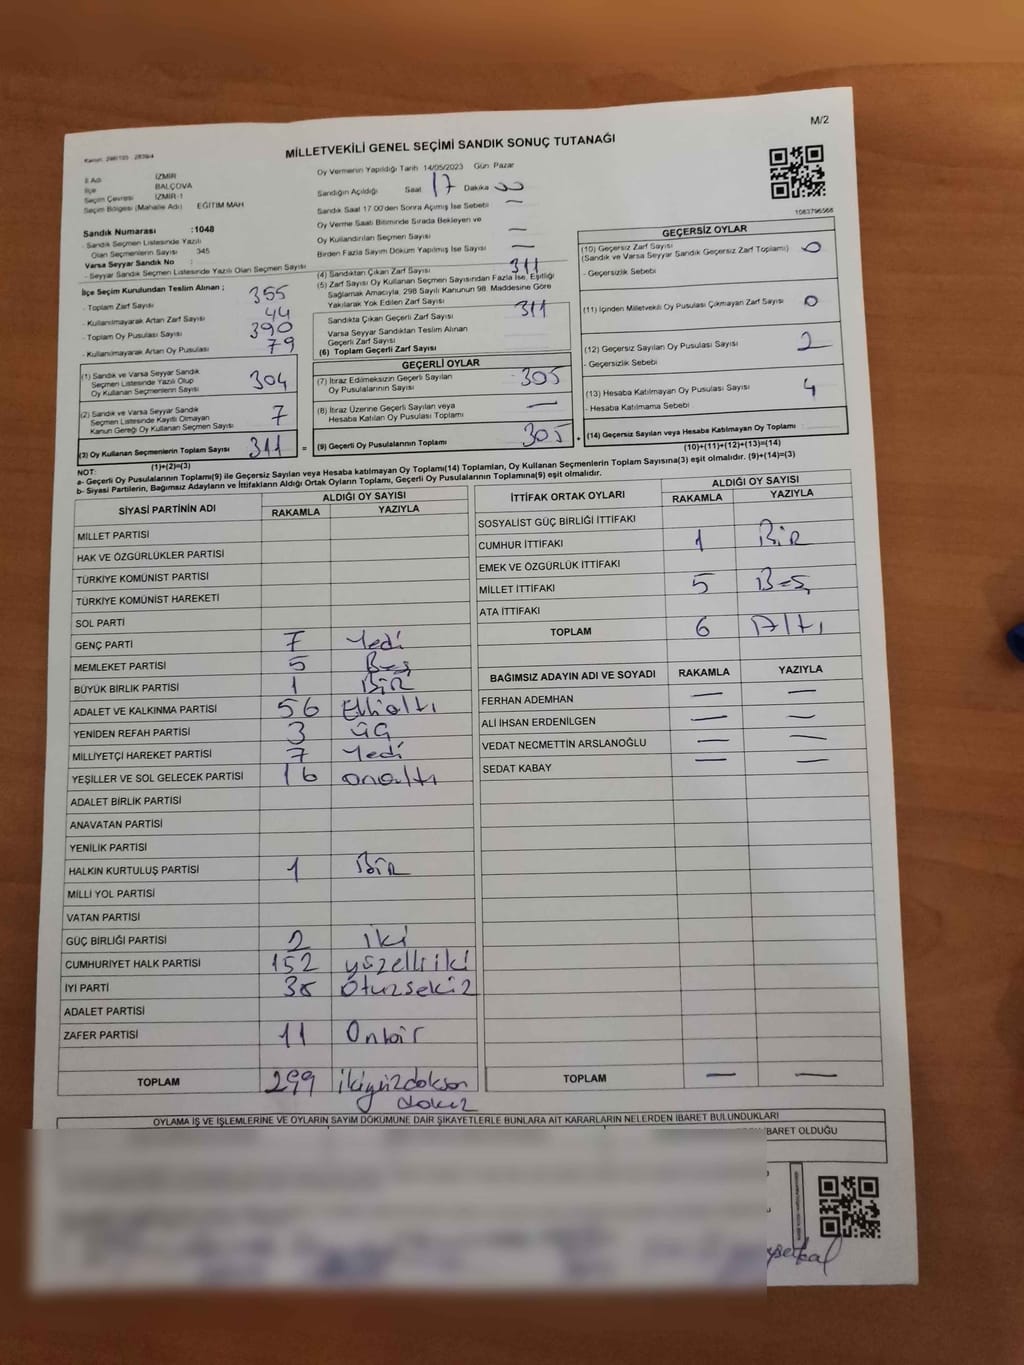 M/2
Kanun: 298/105 2839/4
MİLLETVEKİLİ GENEL SEÇİMİ SANDIK SONUÇ TUTANAĞI
İl Adı İZMİR
İlçe BALÇOVA
Seçim Çevresi İZMİR-1
Seçim Bölgesi (Mahalle Adı) EĞİTİM MAH
Sandık Numarası :1048
- Sandık Seçmen Listesinde Yazılı
Olan Seçmenlerin Sayısı 345
Varsa Seyyar Sandık No :
- Seyyar Sandık Seçmen Listesinde Yazılı Olan Seçmen Sayısı
İlçe Seçim Kurulundan Teslim Alınan ;
- Toplam Zarf Sayısı 355
- Kullanılmayarak Artan Zarf Sayısı 44
- Toplam Oy Pusulası Sayısı 390
- Kullanılmayarak Artan Oy Pusulası 79
(1) Sandık ve Varsa Seyyar Sandık
Seçmen Listesinde Yazılı Olup
Oy Kullanan Seçmenlerin Sayısı 304
(2) Sandık ve Varsa Seyyar Sandık
Seçmen Listesinde Kayıtlı Olmayan
Kanun Gereği Oy Kullanan Seçmen Sayısı 7
(3) Oy Kullanan Seçmenlerin Toplam Sayısı 311 =
(1)+(2)=(3)
Oy Vermenin Yapıldığı Tarih 14/05/2023 Gün Pazar
Sandığın Açıldığı Saat 17 Dakika 00
Sandık Saat 17.00'den Sonra Açılmış İse Sebebi —
Oy Verme Saati Bitiminde Sırada Bekleyen ve
Oy Kullandırılan Seçmen Sayısı —
Birden Fazla Sayım Döküm Yapılmış İse Sayısı —
(4) Sandıktan Çıkan Zarf Sayısı 311
(5) Zarf Sayısı Oy Kullanan Seçmen Sayısından Fazla İse, Eşitliği
Sağlamak Amacıyla, 298 Sayılı Kanunun 98. Maddesine Göre
Yakılarak Yok Edilen Zarf Sayısı
Sandıkta Çıkan Geçerli Zarf Sayısı 311
Varsa Seyyar Sandıktan Teslim Alınan
Geçerli Zarf Sayısı
(6) Toplam Geçerli Zarf Sayısı
GEÇERLİ OYLAR
(7) İtiraz Edilmeksizin Geçerli Sayılan
Oy Pusulalarının Sayısı 305
(8) İtiraz Üzerine Geçerli Sayılan veya
Hesaba Katılan Oy Pusulası Toplamı —
(9) Geçerli Oy Pusulalarının Toplamı 305 +
1083796568
GEÇERSİZ OYLAR
(10) Geçersiz Zarf Sayısı 0
(Sandık ve Varsa Seyyar Sandık Geçersiz Zarf Toplamı)
- Geçersizlik Sebebi
(11) İçinden Milletvekili Oy Pusulası Çıkmayan Zarf Sayısı 0
(12) Geçersiz Sayılan Oy Pusulası Sayısı 2
- Geçersizlik Sebebi
(13) Hesaba Katılmayan Oy Pusulası Sayısı 4
- Hesaba Katılmama Sebebi
(14) Geçersiz Sayılan veya Hesaba Katılmayan Oy Toplamı
(10)+(11)+(12)+(13)=(14)
NOT:
a- Geçerli Oy Pusulalarının Toplamı(9) ile Geçersiz Sayılan veya Hesaba katılmayan Oy Toplamı(14) Toplamları, Oy Kullanan Seçmenlerin Toplam Sayısına(3) eşit olmalıdır. (9)+(14)=(3)
b- Siyasi Partilerin, Bağımsız Adayların ve İttifakların Aldığı Ortak Oyların Toplamı, Geçerli Oy Pusulalarının Toplamına(9) eşit olmalıdır.
SİYASİ PARTİNİN ADI ALDIĞI OY SAYISI
RAKAMLA YAZIYLA
MİLLET PARTİSİ
HAK VE ÖZGÜRLÜKLER PARTİSİ
TÜRKİYE KOMÜNİST PARTİSİ
TÜRKİYE KOMÜNİST HAREKETİ
SOL PARTİ
GENÇ PARTİ 7 Yedi
MEMLEKET PARTİSİ 5 Beş
BÜYÜK BİRLİK PARTİSİ 1 BİR
ADALET VE KALKINMA PARTİSİ 56 Ellialtı
YENİDEN REFAH PARTİSİ 3 üç
MİLLİYETÇİ HAREKET PARTİSİ 7 Yedi
YEŞİLLER VE SOL GELECEK PARTİSİ 16 onaltı
ADALET BİRLİK PARTİSİ
ANAVATAN PARTİSİ
YENİLİK PARTİSİ
HALKIN KURTULUŞ PARTİSİ 1 BİR
MİLLİ YOL PARTİSİ
VATAN PARTİSİ
GÜÇ BİRLİĞİ PARTİSİ 2 iki
CUMHURİYET HALK PARTİSİ 152 yüzelliiki
İYİ PARTİ 38 Otuzsekiz
ADALET PARTİSİ
ZAFER PARTİSİ 11 Onbir
TOPLAM 299 ikiyüzdoksan
dokuz
İTTİFAK ORTAK OYLARI ALDIĞI OY SAYISI
RAKAMLA YAZIYLA
SOSYALİST GÜÇ BİRLİĞİ İTTİFAKI
CUMHUR İTTİFAKI 1 BİR
EMEK VE ÖZGÜRLÜK İTTİFAKI
MİLLET İTTİFAKI 5 Beş
ATA İTTİFAKI
TOPLAM 6 Altı
BAĞIMSIZ ADAYIN ADI VE SOYADI RAKAMLA YAZIYLA
FERHAN ADEMHAN — —
ALİ İHSAN ERDENİLGEN — —
VEDAT NECMETTİN ARSLANOĞLU — —
SEDAT KABAY — —
TOPLAM — —
OYLAMA İŞ VE İŞLEMLERİNE VE OYLARIN SAYIM DÖKÜMÜNE DAİR ŞİKAYETLERLE BUNLARA AİT KARARLARIN NELERDEN İBARET BULUNDUKLARI
İBARET OLDUĞU